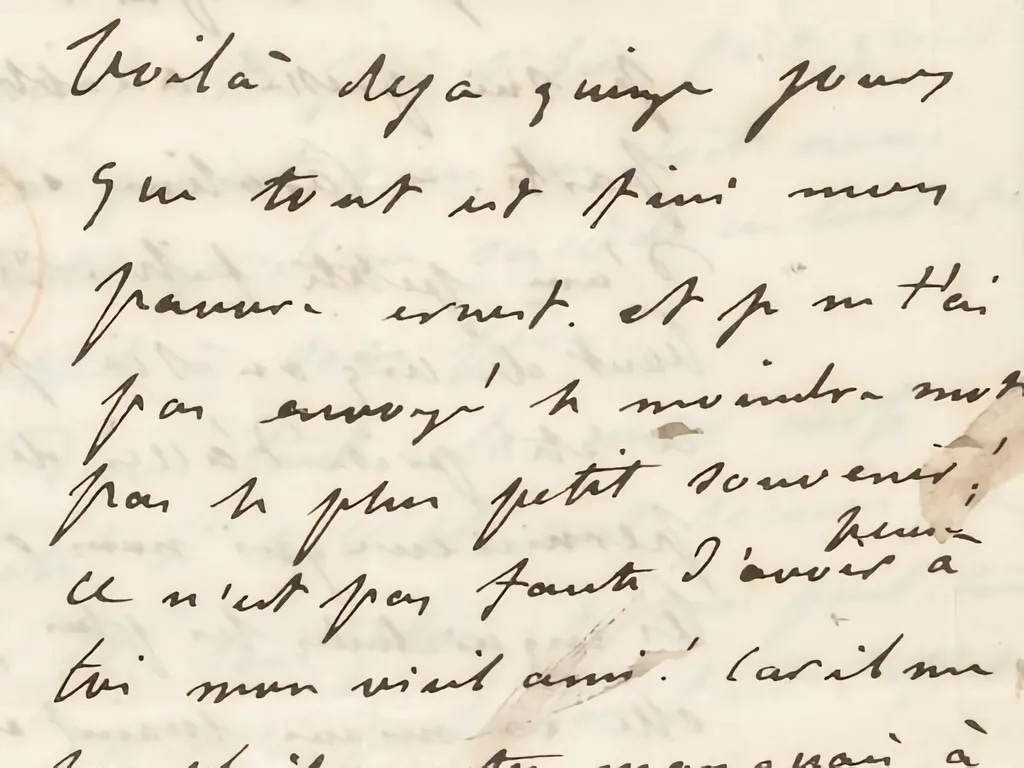 Voilà deja quinze jours
que tout est fini mon
pauvre ernest. et je ne t'ai
pas envoyé le moindre mot
pas le plus petit souvenir!
pensé
ce n'est pas faute d'avoir à
toi mon vieil ami! Car il me
manquait à